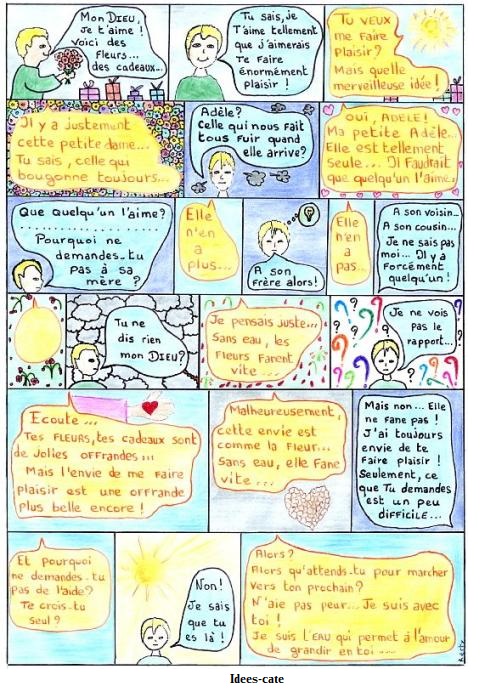 Mon DIEU,
Je t'aime !
Voici des
Fleurs...
des cadeaux...
Tu sais, je
T'aime tellement
que j'aimerais
Te Faire
énormément
plaisir !
Tu VEUX
me Faire
plaisir ?
Mais quelle
merveilleuse idée !
Il y a justement
cette petite dame...
Tu sais, celle qui
bougonne toujours...
Adèle ?
Celle qui nous Fait
tous Fuir quand
elle arrive ?
Oui, ADELE !
Ma petite Adèle...
Elle est tellement
seule... Il Faudrait
que quelqu'un l'aime.
Que quelqu'un l'aime?
..................
Pourquoi ne
demandes-tu
pas à sa
mère ?
Elle
n'en
a
plus...
A son
Frère alors!
Elle
n'en
a
pas...
A son voisin...
A son cousin...
Je ne sais pas
moi... Il y a
Forcément
quelqu'un !
Tu ne
dis rien
mon DIEU?
Je pensais juste...
Sans eau, les
Fleurs Fanent
vite...
Je ne vois
pas le
rapport...
Ecoute...
Tes FLEURS, tes cadeaux sont
de jolies offrandes...
Mais l'envie de me Faire
plaisir est une offrande
plus belle encore !
Malheureusement,
cette envie est
comme la Fleur...
Sans eau, elle Fane
vite...
Mais non... Elle
ne Fane pas !
J'ai toujours
envie de te
Faire plaisir !
Seulement, ce
que Tu demandes
est un peu
difficile...
Et pourquoi
ne demandes-tu
pas de l'aide?
Te crois-tu
seul ?
Non!
Je sais
que tu
es là !
Alors ?
Alors qu'attends-tu pour marcher
vers ton prochain?
N'aie pas peur... Je suis avec
toi !
Je suis l'EAU qui permet à l'amour
de grandir en toi...
Idees-cate